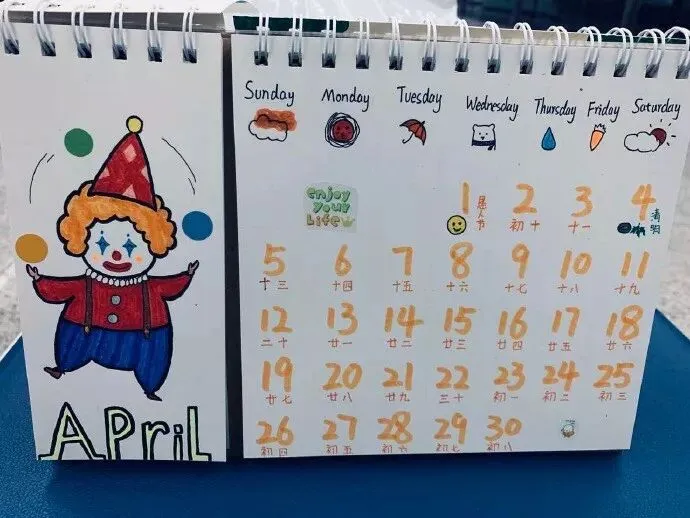 Sunday Monday Tuesday Wednesday Thursday Friday Saturday
enjoy
your
Life
1 2 3 4
愚人节 初十 十一 清明
5 6 7 8 9 10 11
十三 十四 十五 十六 十七 十八 十九
12 13 14 15 16 17 18
二十 廿一 廿二 廿三 廿四 廿五 廿六
19 20 21 22 23 24 25
廿七 廿八 廿九 三十 初一 初二 初三
26 27 28 29 30
初四 初五 初六 初七 初八
APriL